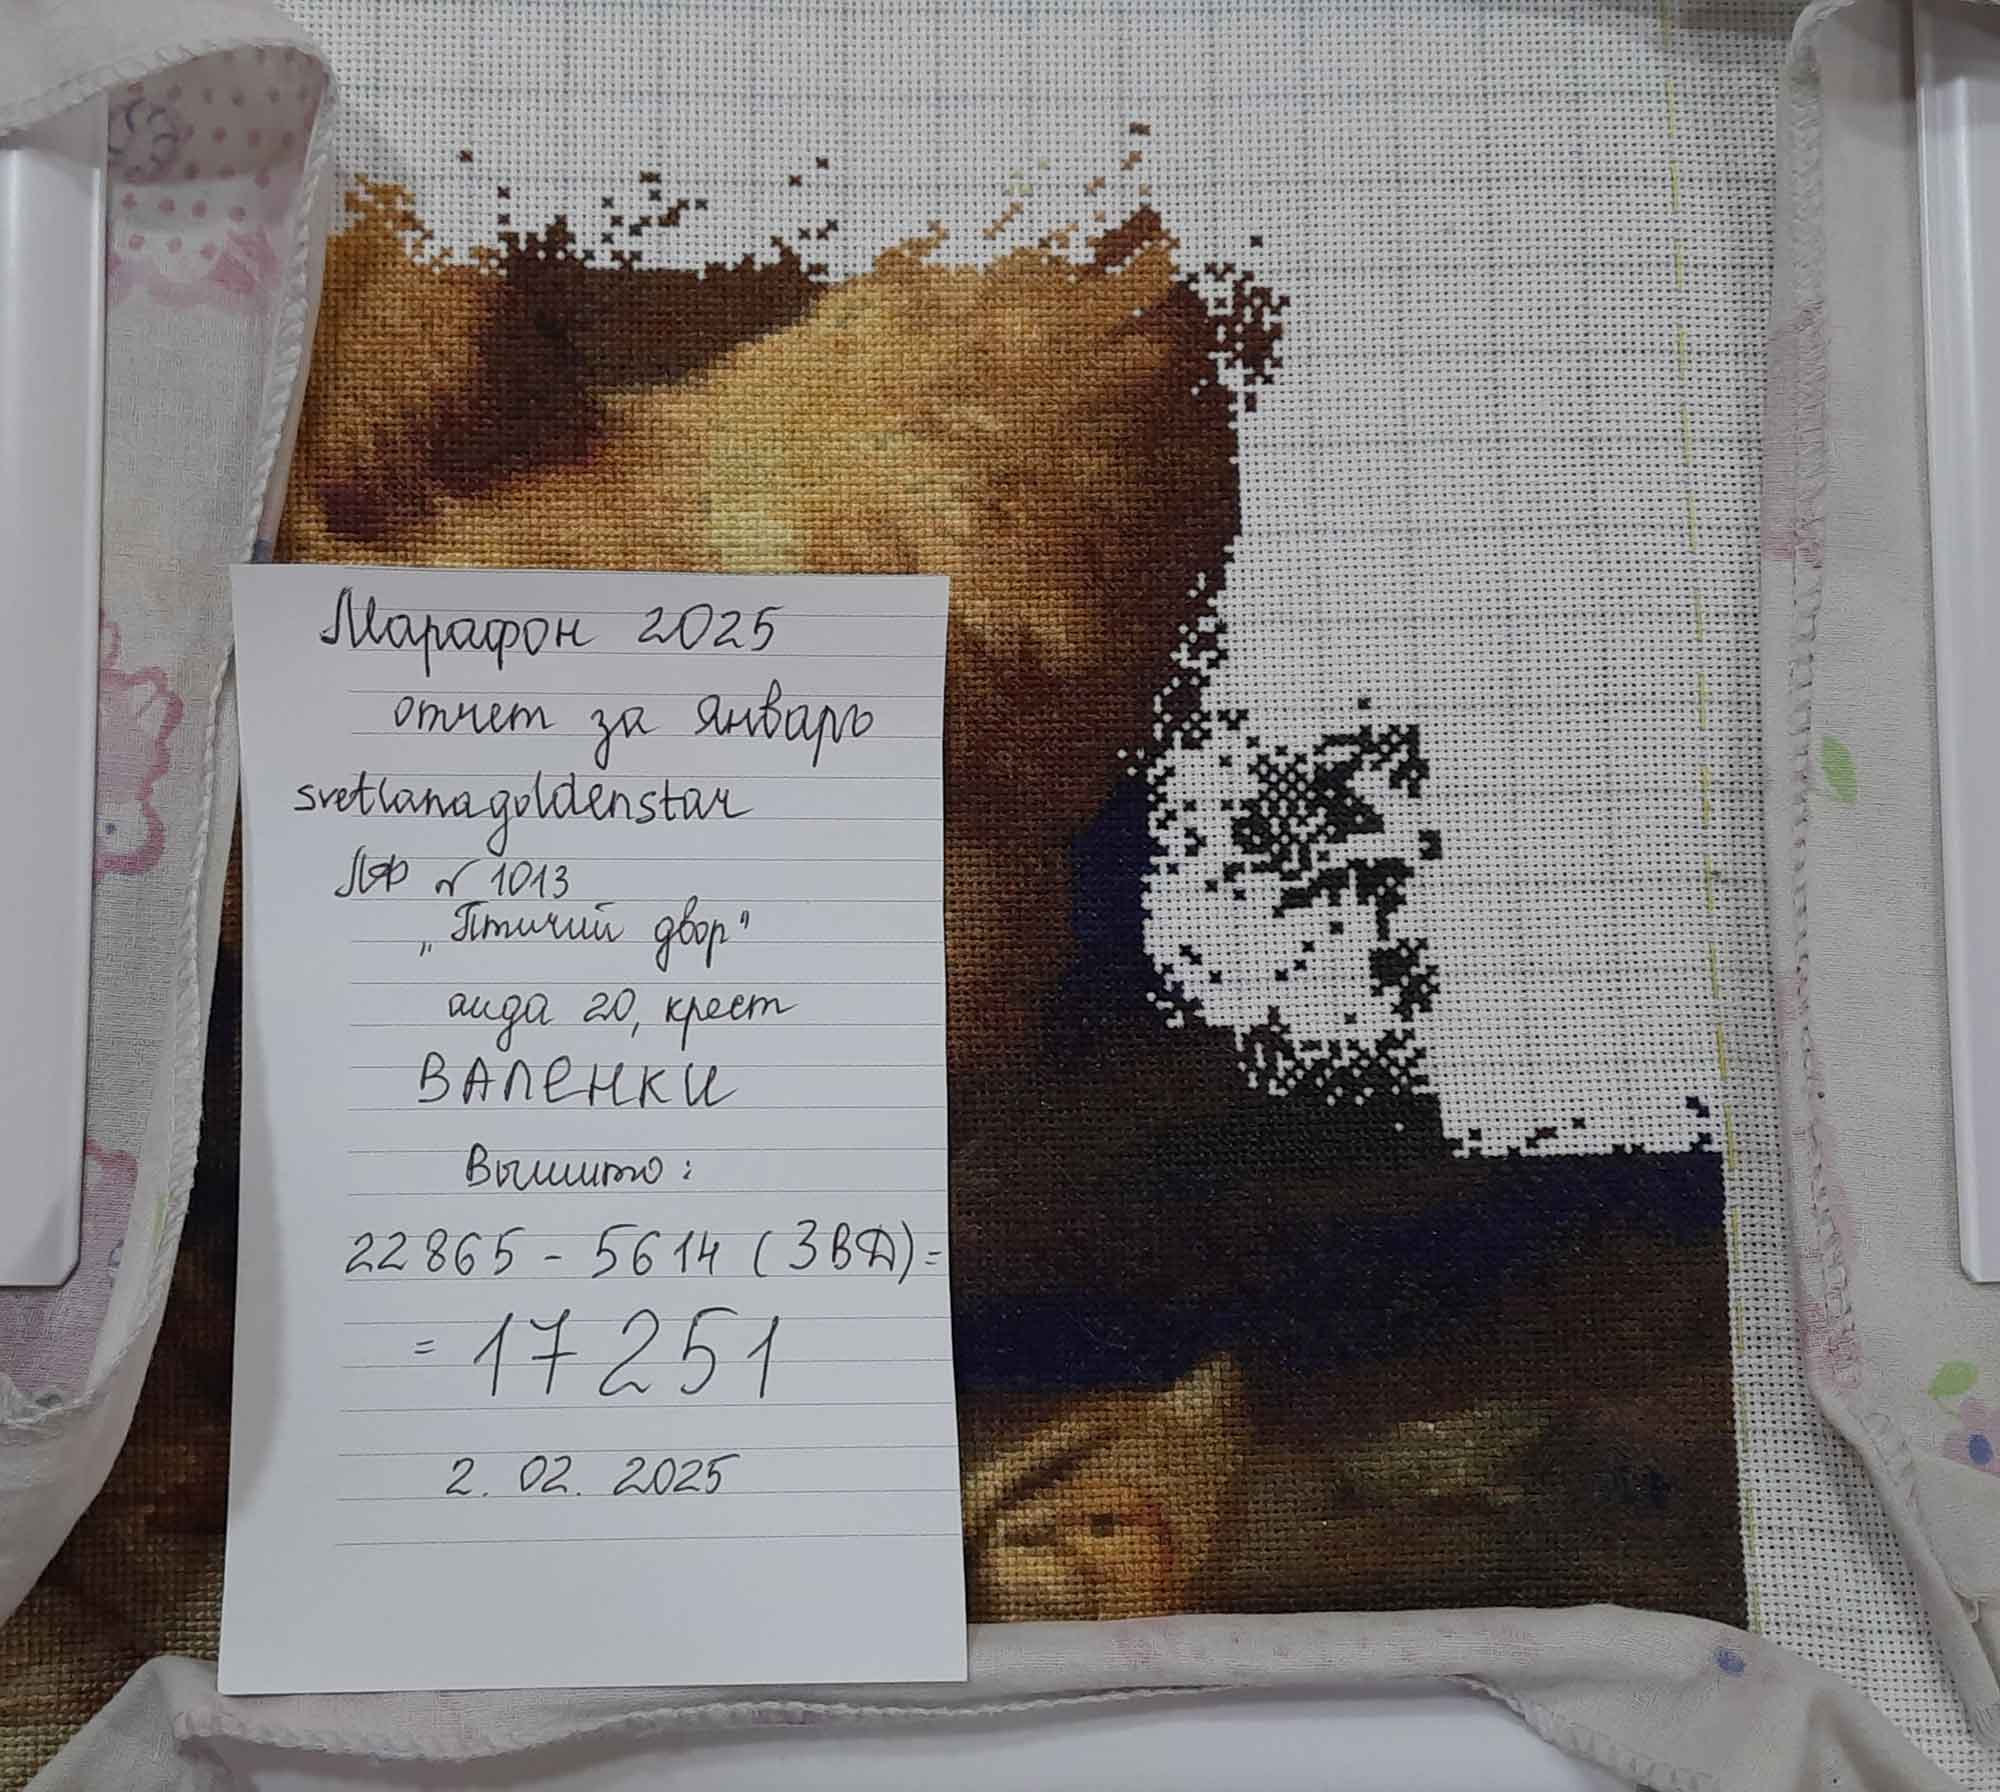 Марафон 2025
отчет за январь
svetlanagoldenstar
ЛФ № 1013
„Птичий двор"
аида 20, крест
ВАЛЕНКИ
Вышито:
22865 - 5614 (ЗВД) =
= 17251
2. 02. 2025